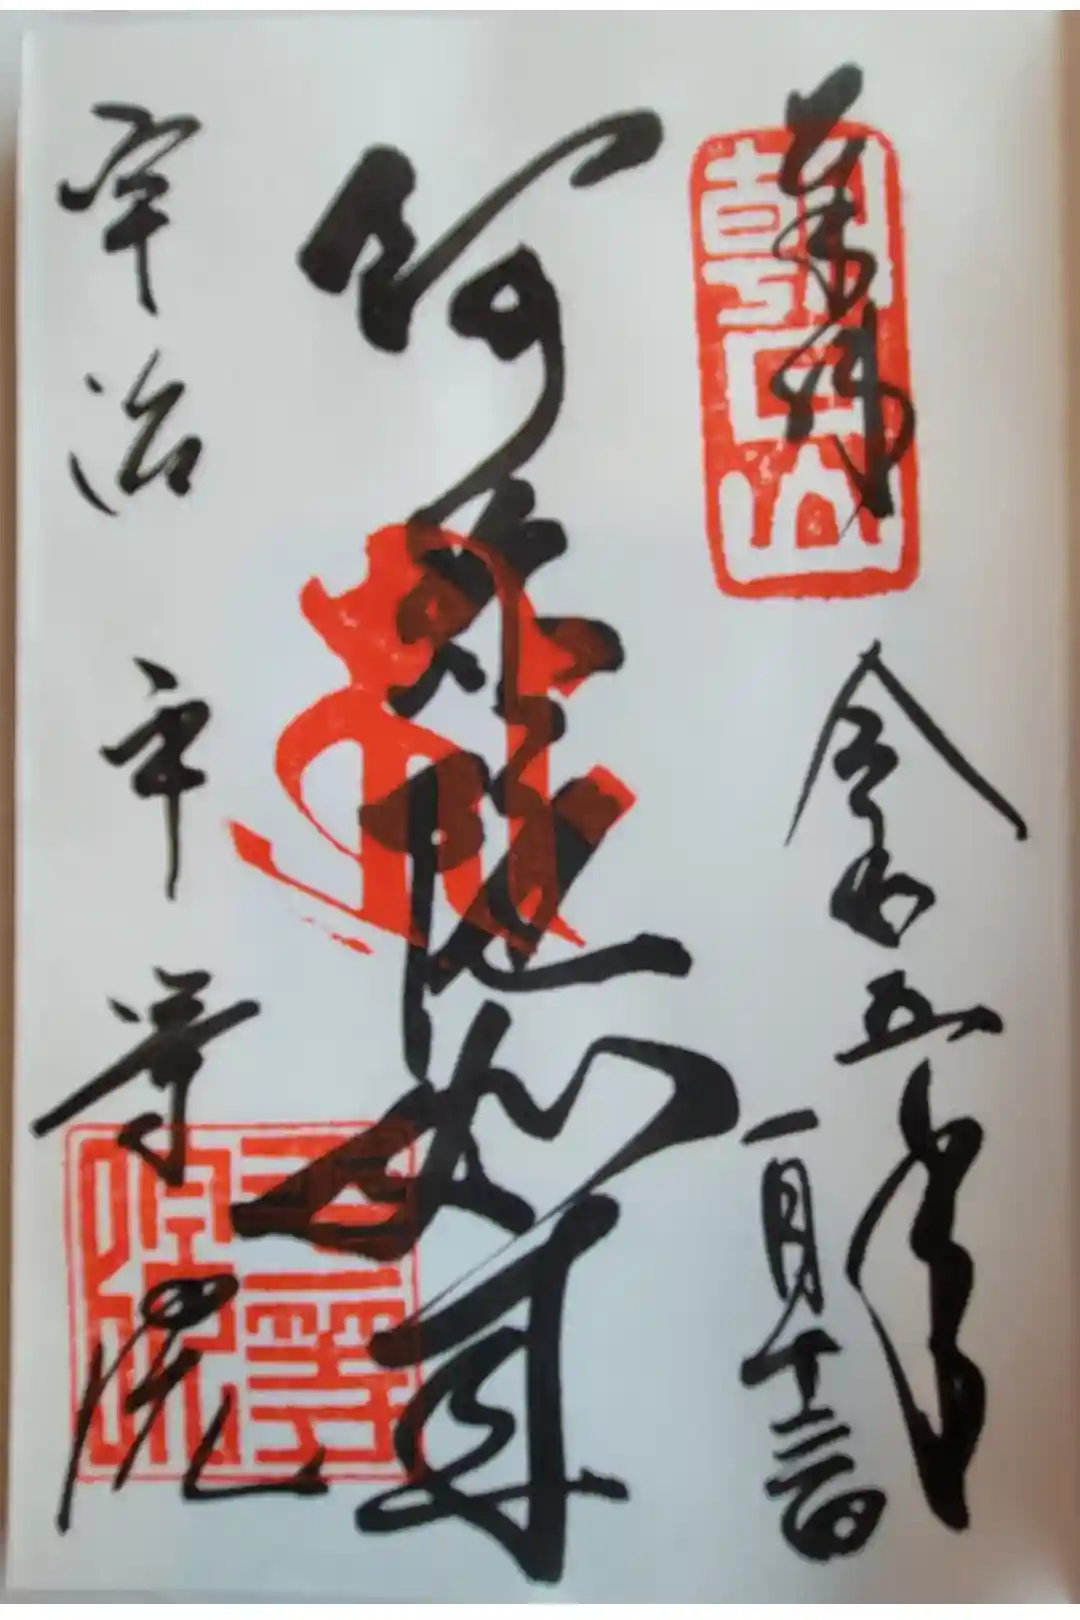 奉拝
朝日山
令和五年
一月
阿弥陀如来
宇治 平等院